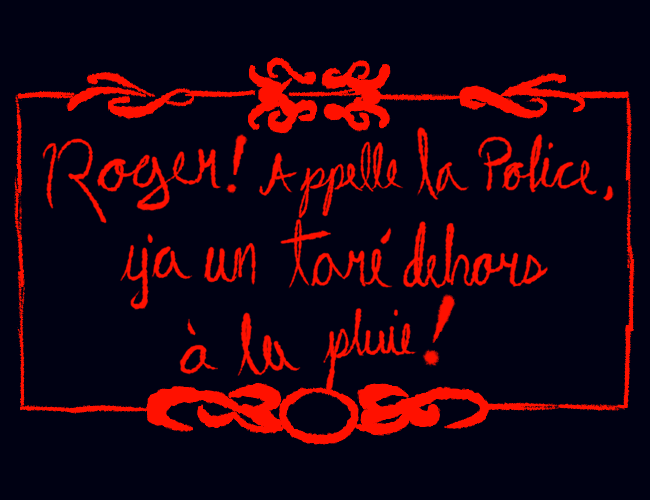 Roger! Appelle la Police,
y'a un taré dehors
à la pluie!